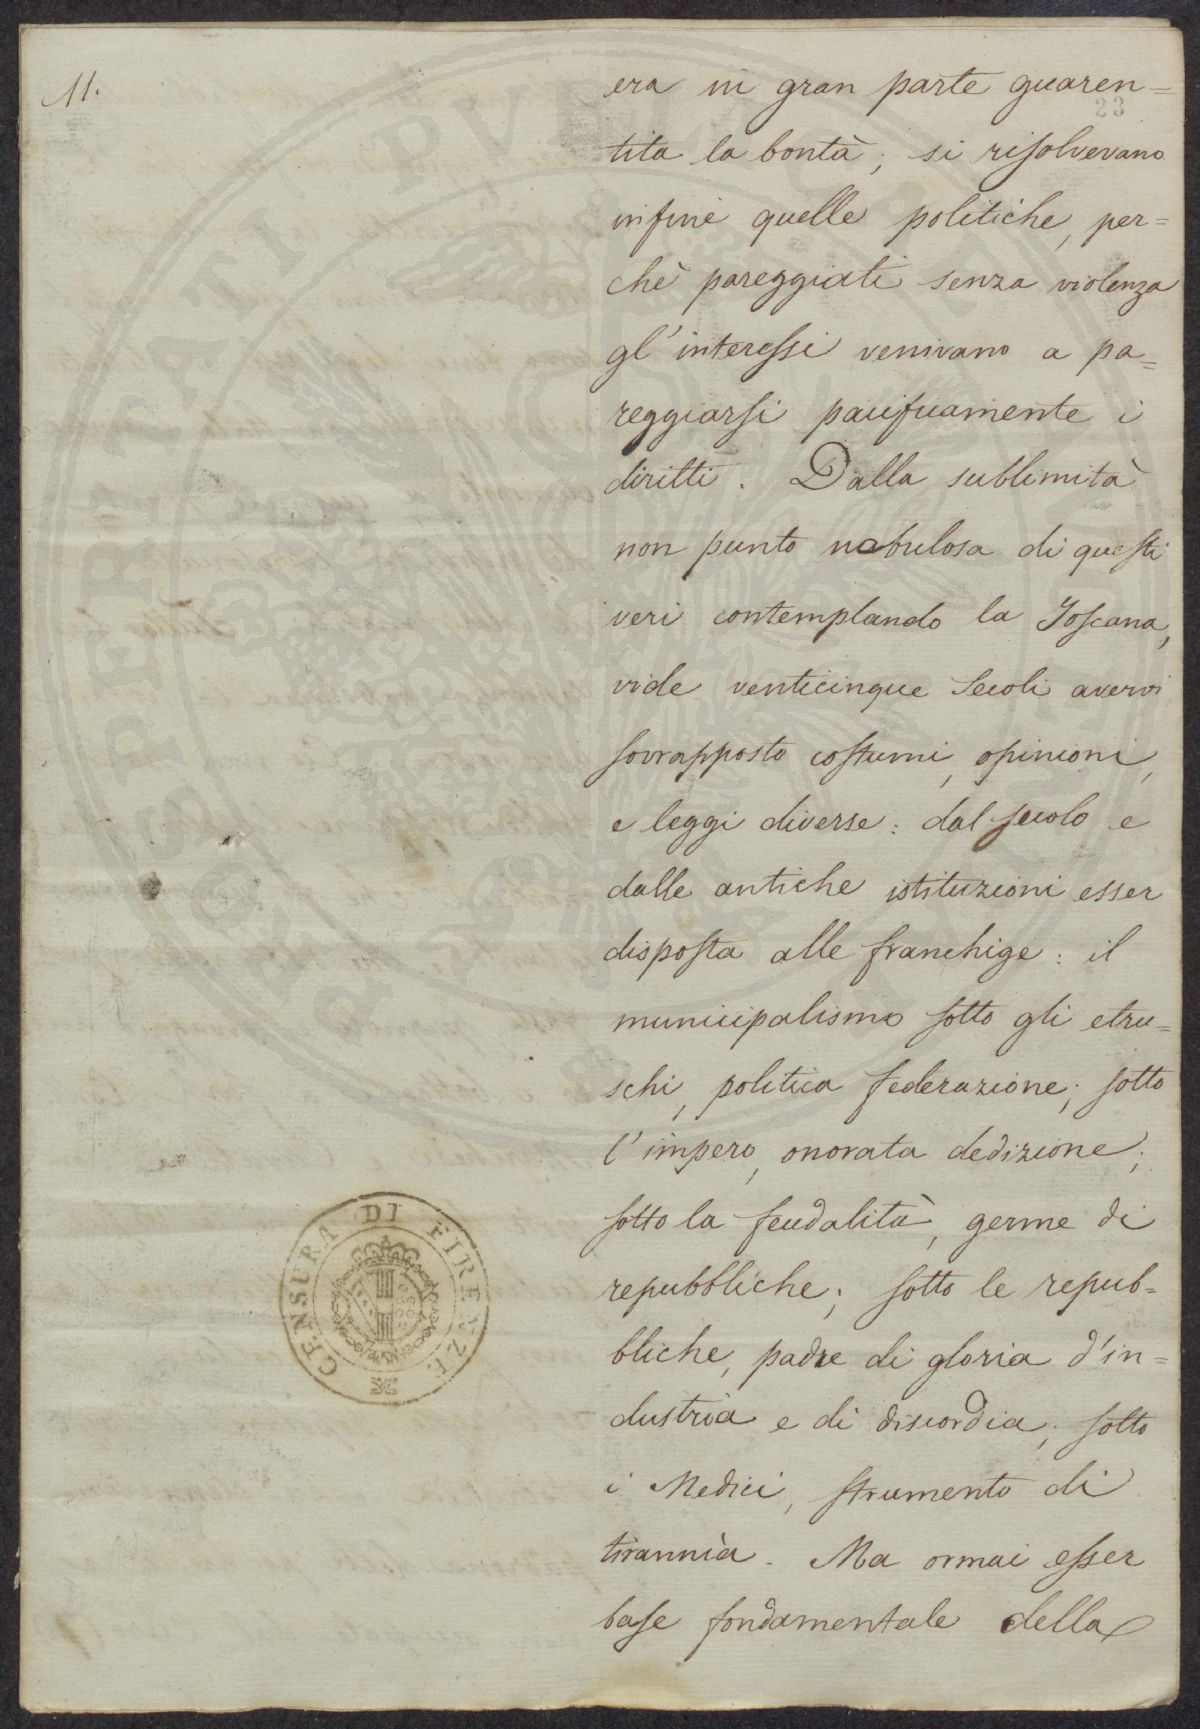 11.
23
era in gran parte guaren=
tita la bontà; si risolvevano
infine quelle politiche, per=
chè pareggiati senza violenza
gl'interessi venivano a pa=
reggiarsi pacificamente i
diritti. Dalla sublimità
non punto nebulosa di questi
veri contemplando la Toscana,
vide venticinque secoli avervi
sovrapposto costumi, opinioni,
e leggi diverse: dal secolo e
dalle antiche istituzioni esser
disposta alle franchige: il
municipalismo sotto gli etru=
schi, politica federazione; sotto
l'impero, onorata dedizione;
sotto la feudalità, germe di
repubbliche; sotto le repub=
bliche, padre di gloria d'in=
dustria e di discordia; sotto
i Medici, strumento di
tirannìa. Ma ormai esser
base fondamentale della
CENSURA DI FIRENZE